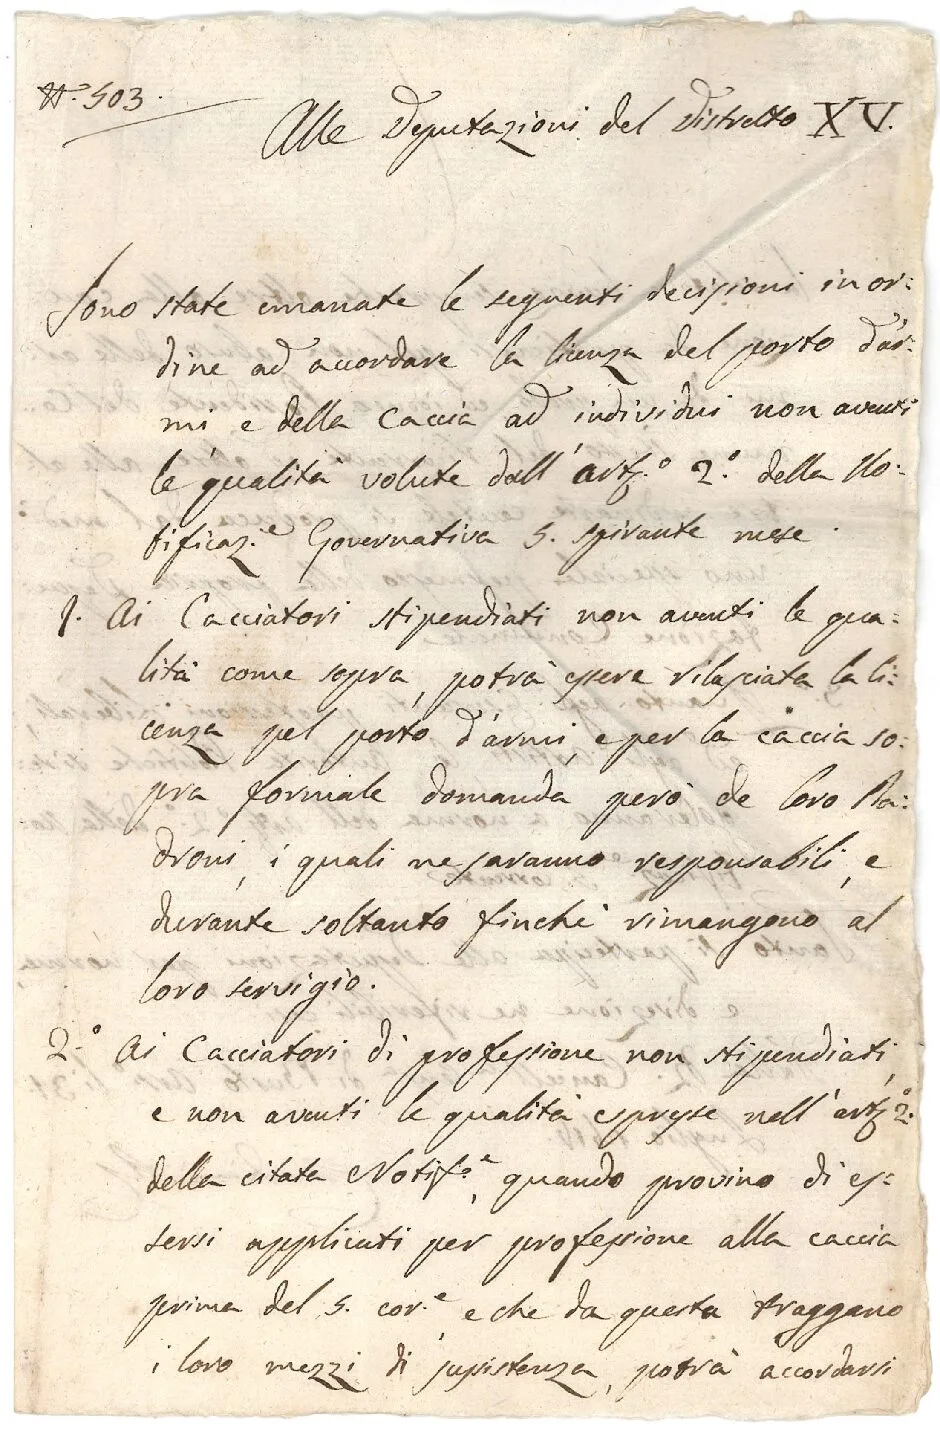 N.° 503.
Alle Deputazioni del Distretto XV.
Sono state emanate le seguenti decisioni in or:
dine ad accordare la licenza del porto d'ar:
mi e della Caccia ad individui non aventi
le qualità volute dall'art.° 2.° della No:
tificaz.e Governativa 5. spirante mese.
1. Ai Cacciatori stipendiati non aventi le qua:
lità come sopra, potrà essere rilasciata la li:
cenza pel porto d'armi, e per la caccia so:
pra formale domanda però de loro Pa:
droni, i quali ne saranno responsabili, e
durante soltanto finchè rimangono al
loro servigio.
2.° Ai Cacciatori di professione non stipendiati,
e non aventi le qualità espresse nell'art.° 2.°
della citata Notif.e, quando provino di es:
sersi applicati per professione alla caccia
prima del 5. cor.e, e che da questa traggano
i loro mezzi di sussistenza, potrà accordarsi